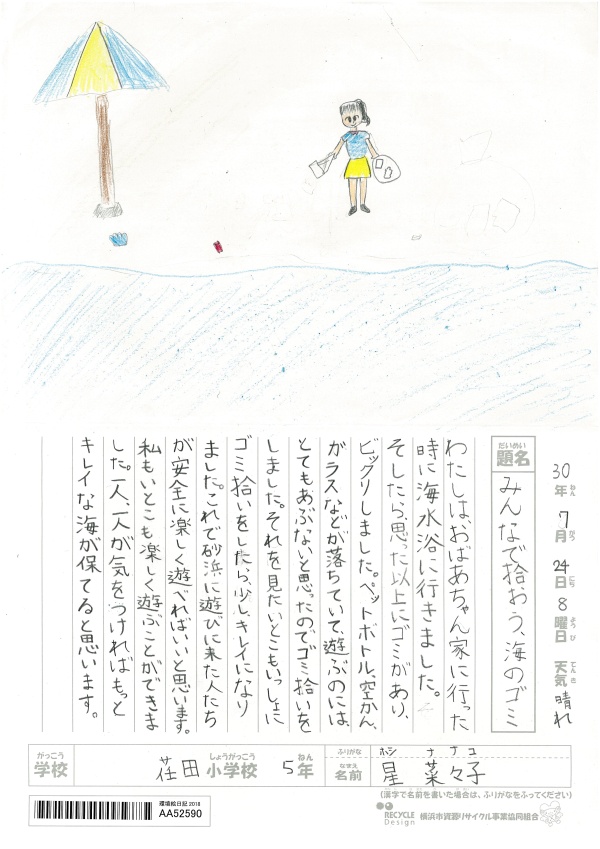 30年ねん7月がつ24日にち8曜日ようび天気てんき晴れ
題名だいめい みんなで拾おう、海のゴミ
わたしはおばあちゃん家に行った
時に海水浴に行きました。
そしたら思った以上にゴミがあり、
ビックリしました。ペットボトル、空かん、
ガラスなどが落ちていて、遊ぶのには、
とてもあぶないと思ったのでゴミ拾いを
しました。それを見たいとこもいっしょに
ゴミ拾いをしたら、少しキレイになり
ました。これで砂浜に遊びに来た人たち
が安全に楽しく遊べればいいと思います。
私もいとこも楽しく遊ぶことができま
した。一人、一人が気をつければもっと
キレイな海が保てると思います。
がっこう しょうがっこう ねん ふりがな ホシ ナナコ
学校 荏田小学校 5年 なまえ 名前 星 菜々子
(漢字で名前を書いた場合は、ふりがなをふってください)
環境絵日記 2018
AA52590
RECYCLE Design 横浜市資源リサイクル事業協同組合